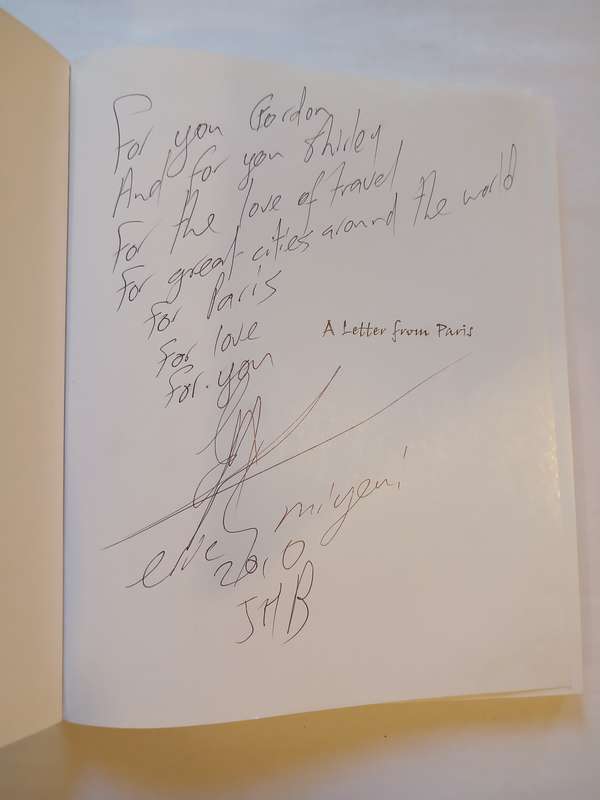 For you Gordon
And for you Shirley
For the love of travel
For great cities around the world
for Paris
for love
for you
A Letter from Paris
eric miyeni
2010
JHB